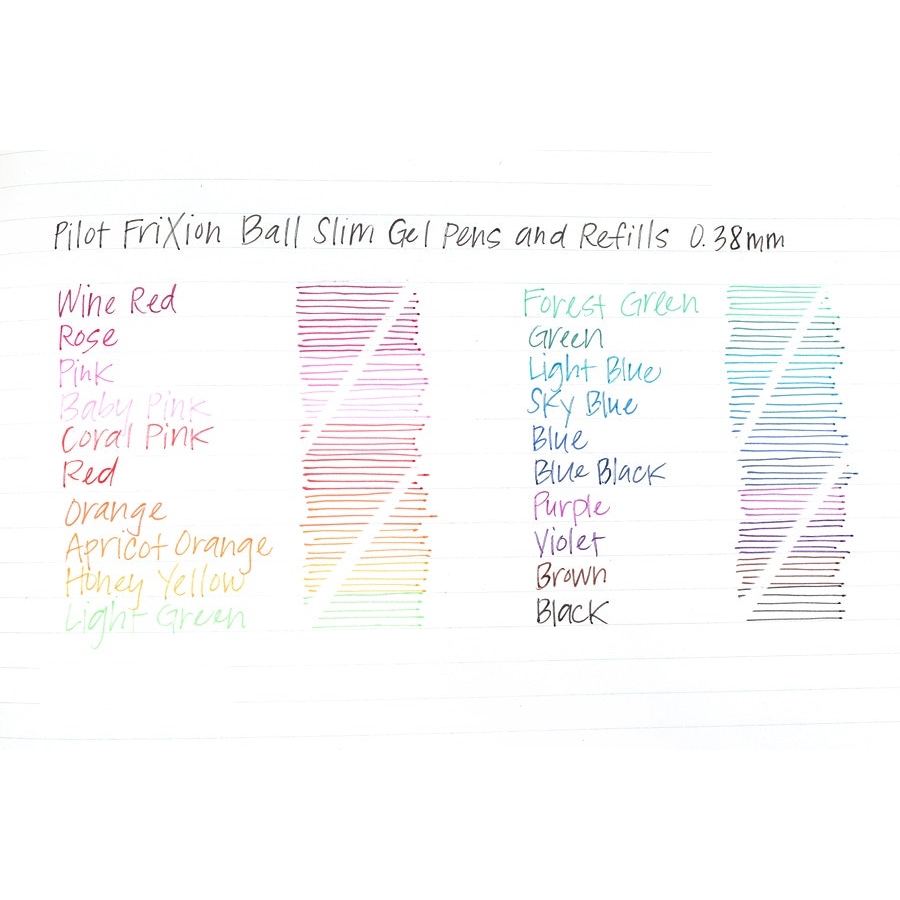 Pilot FriXion Ball Slim Gel Pens and Refills 0.38mm
Wine Red
Rose
Pink
Baby Pink
Coral Pink
Red
Orange
Apricot Orange
Honey Yellow
Light Green
Forest Green
Green
Light Blue
Sky Blue
Blue
Blue Black
Purple
Violet
Brown
Black